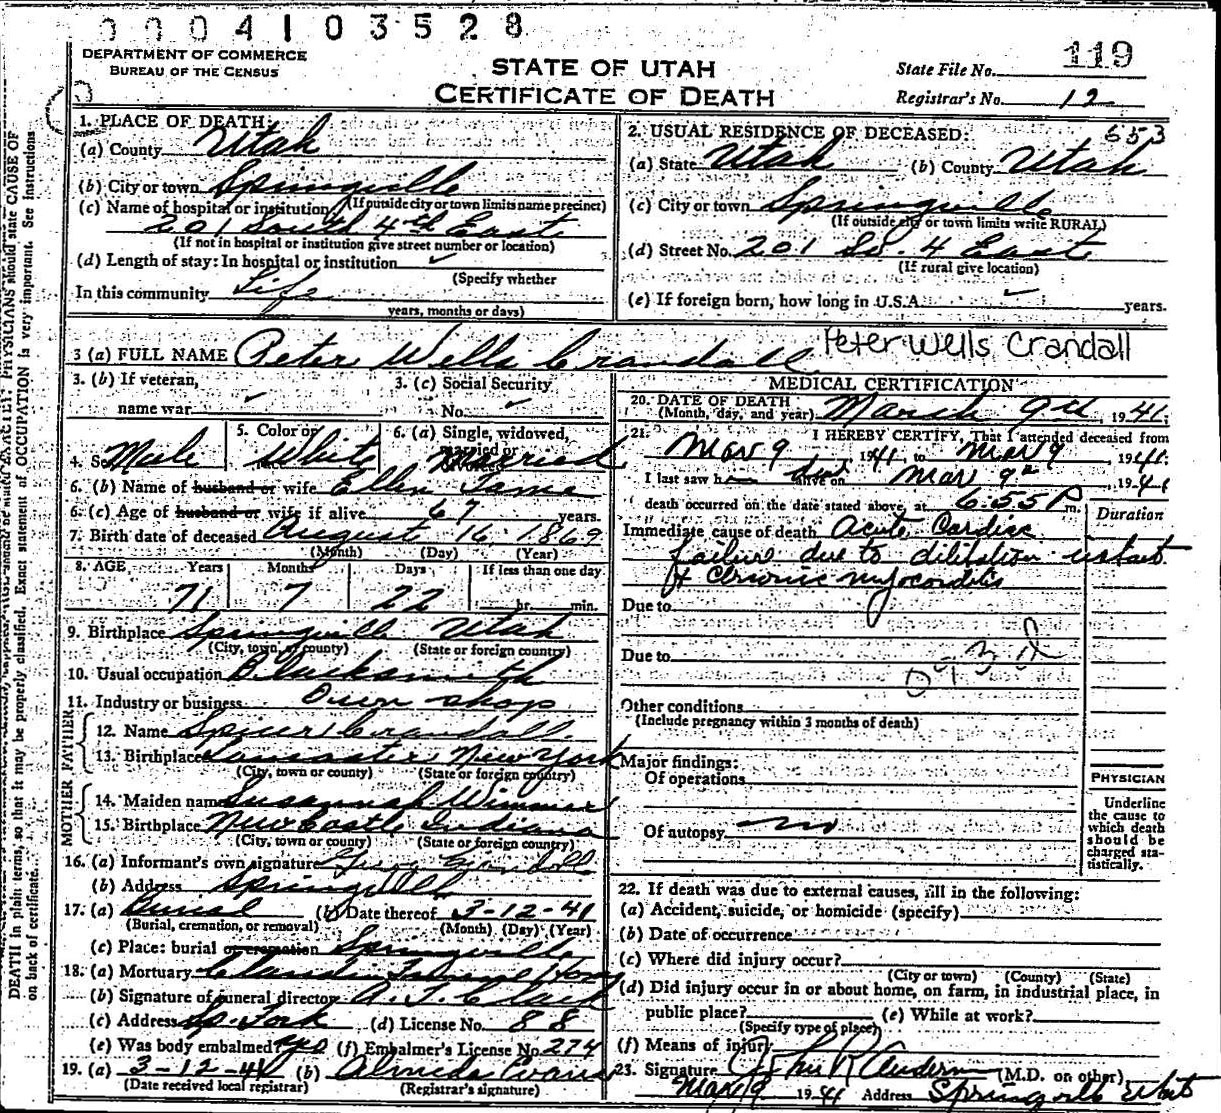 0004103528
DEPARTMENT OF COMMERCE
BUREAU OF THE CENSUS
STATE OF UTAH
CERTIFICATE OF DEATH
State File No. 119
Registrar's No. 12
1. PLACE OF DEATH:
(a) County Utah
(b) City or town Springville
(If outside city or town limits name precinct)
(c) Name of hospital or institution
201 South 4th East
(If not in hospital or institution give street number or location)
(d) Length of stay: In hospital or institution
(Specify whether
In this community Life
years, months or days)
2. USUAL RESIDENCE OF DECEASED: 653
(a) State Utah (b) County Utah
(c) City or town Springville
(If outside city or town limits write RURAL)
(d) Street No. 201 So. 4 East
(If rural give location)
(e) If foreign born, how long in U.S.A. years.
3 (a) FULL NAME Peter Wells Crandall Peter Wells Crandall
3. (b) If veteran,
name war
3. (c) Social Security
No.
4. Sex Male
5. Color or White
6. (a) Single, widowed,
Married
6. (b) Name of husband or wife Ellen
6. (c) Age of husband or wife if alive 67 years.
7. Birth date of deceased August 16, 1869
(Month) (Day) (Year)
8. AGE Years Months Days If less than one day
71 7 22 hr. min.
9. Birthplace Springville Utah
(City, town, or county) (State or foreign country)
10. Usual occupation Blacksmith
11. Industry or business Own shop
FATHER
12. Name Spicer Crandall
13. Birthplace Lancaster New York
(City, town or county) (State or foreign country)
MOTHER
14. Maiden name Susannah Wimmer
15. Birthplace New Castle Indiana
(City, town or county) (State or foreign country)
16. (a) Informant's own signature Crandall
(b) Address Springville
17. (a) Burial (b) Date thereof 3-12-41
(Burial, cremation, or removal) (Month) (Day) (Year)
(c) Place: burial or cremation Springville
18. (a) Mortuary Claudin Funeral Home
(b) Signature of funeral director A. Y. Clark
(c) Address Sp. Fork (d) License No. 88
(e) Was body embalmed? Yes (f) Embalmer's License No. 274
19. (a) 3-12-41 (b) Almeda Evans
(Date received local registrar) (Registrar's signature)
MEDICAL CERTIFICATION
20. DATE OF DEATH
(Month, day, and year) March 9th, 1941;
21. I HEREBY CERTIFY, That I attended deceased from
Mar 9 1941, to Mar 9 1941.
I last saw h alive on Mar 9 1941
death occurred on the date stated above, at 6:55 P m.
Duration
Immediate cause of death Acute Cardiac
failure due to dilitation instant
of Chronic myocarditis
Due to
Due to
Other conditions
(Include pregnancy within 3 months of death)
Major findings:
Of operations
Of autopsy no
PHYSICIAN
Underline
the cause to
which death
should be
charged sta-
tistically.
22. If death was due to external causes, fill in the following:
(a) Accident, suicide, or homicide (specify)
(b) Date of occurrence
(c) Where did injury occur?
(City or town) (County) (State)
(d) Did injury occur in or about home, on farm, in industrial place, in
public place? (e) While at work?
(Specify type of place)
(f) Means of injury
23. Signature R Anderson (M.D. or other)
Mar 9 1941 Address Springville Utah